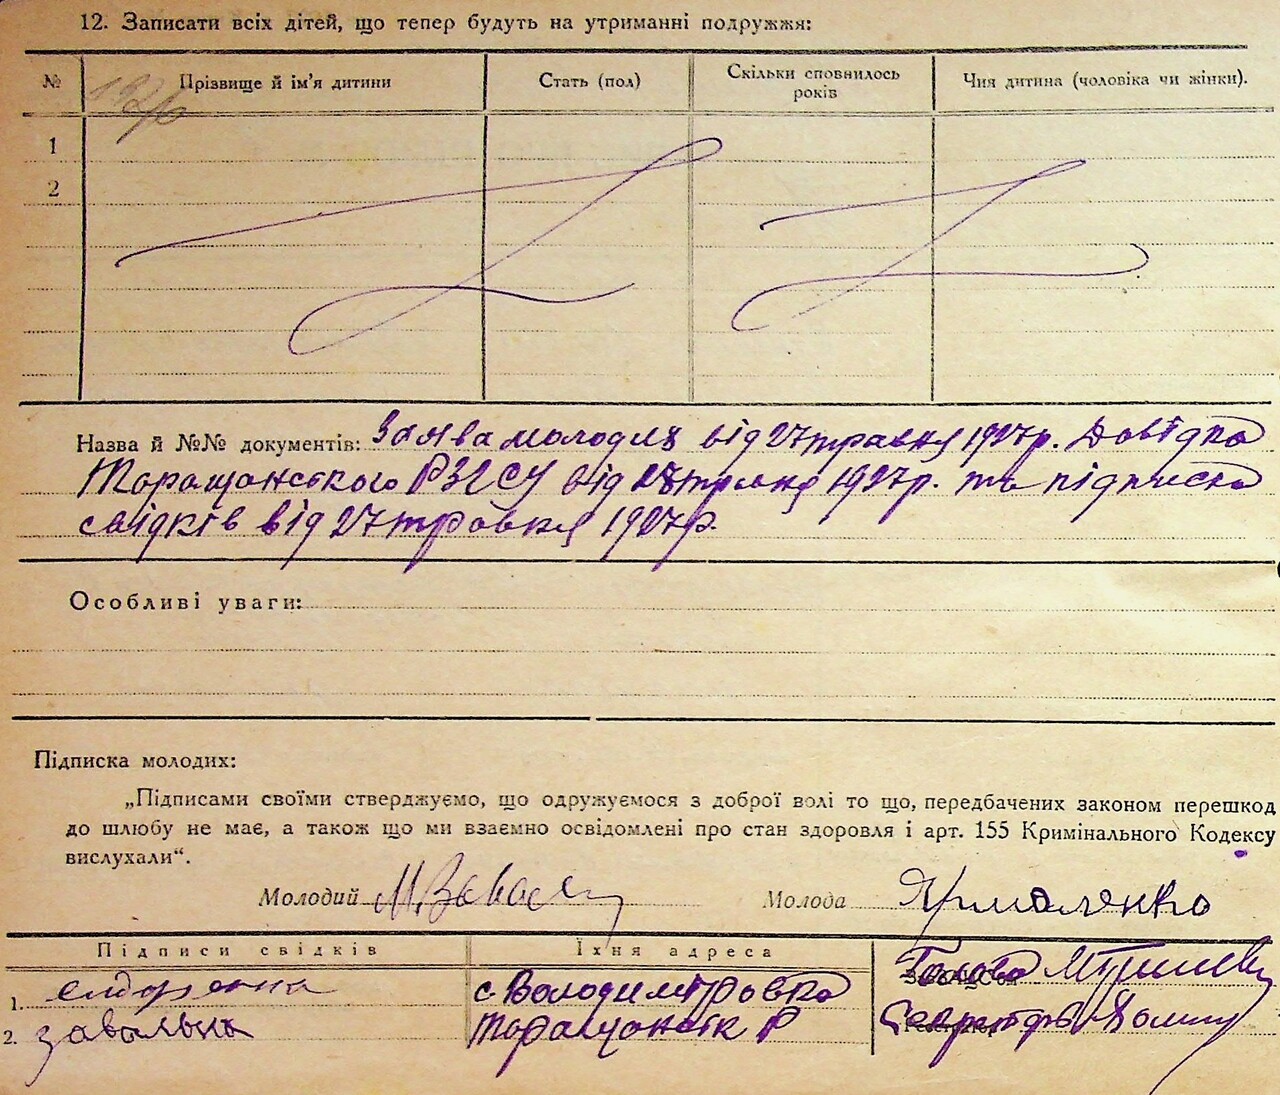 12. Записати всіх дітей, що тепер будуть на утриманні подружжя:
№ Прізвище й ім'я дитини Стать (пол) Скільки сповнилось років Чия дитина (чоловіка чи жінки).
1
2
Назва й №№ документів: Заява молодих від 27 травня 1927 р. Довідка
Таращанського РЗАГСУ від 28 травня 1927 р. та підписка
свідків від 27 травня 1927 р.
Особливі уваги:
Підписка молодих:
„Підписами своїми стверджуємо, що одружуємося з доброї волі то що, передбачених законом перешкод
до шлюбу не має, а також що ми взаємно освідомлені про стан здоровля і арт. 155 Кримінального Кодексу
вислухали“.
Молодий Молода Ярмоленко
Підписи свідків Їхня адреса Голова
1. с Володимировка
2. завальна Таращанськ Р Секретарь